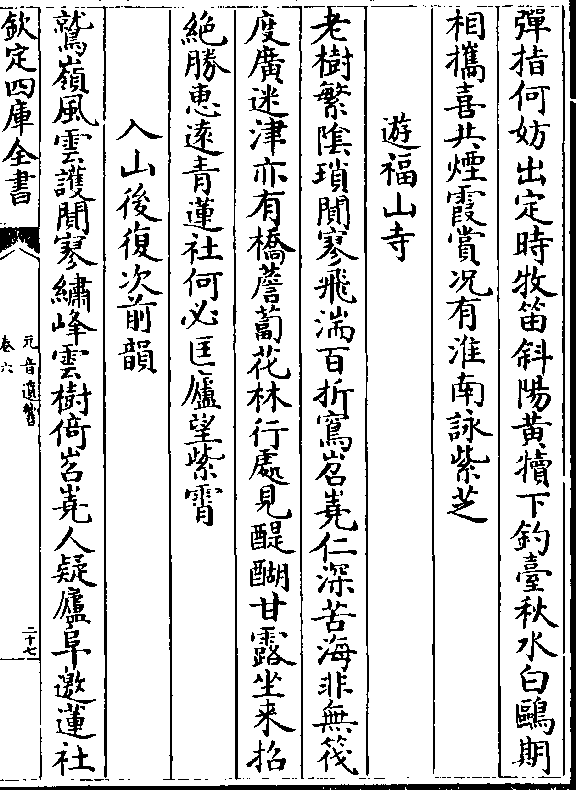 彈指何妨出定時牧笛斜陽黃犢下釣臺秋水白鷗期
相攜喜共煙霞賞况有淮南詠紫芝
遊福山寺
老樹繁隂瑣閴寥飛湍百折寫岧嶤仁深苦海非無筏
度廣迷津亦有橋薝蔔花林行處見醍醐甘露坐来招
絶勝惠遠青蓮社何必匡廬望紫霄
入山後復次前韻
鷲嶺風雲護閴寥繡峰雲樹倚岧嶤人疑廬阜邀蓮社
欽定四庫全書
元音遺響
卷六
二十七